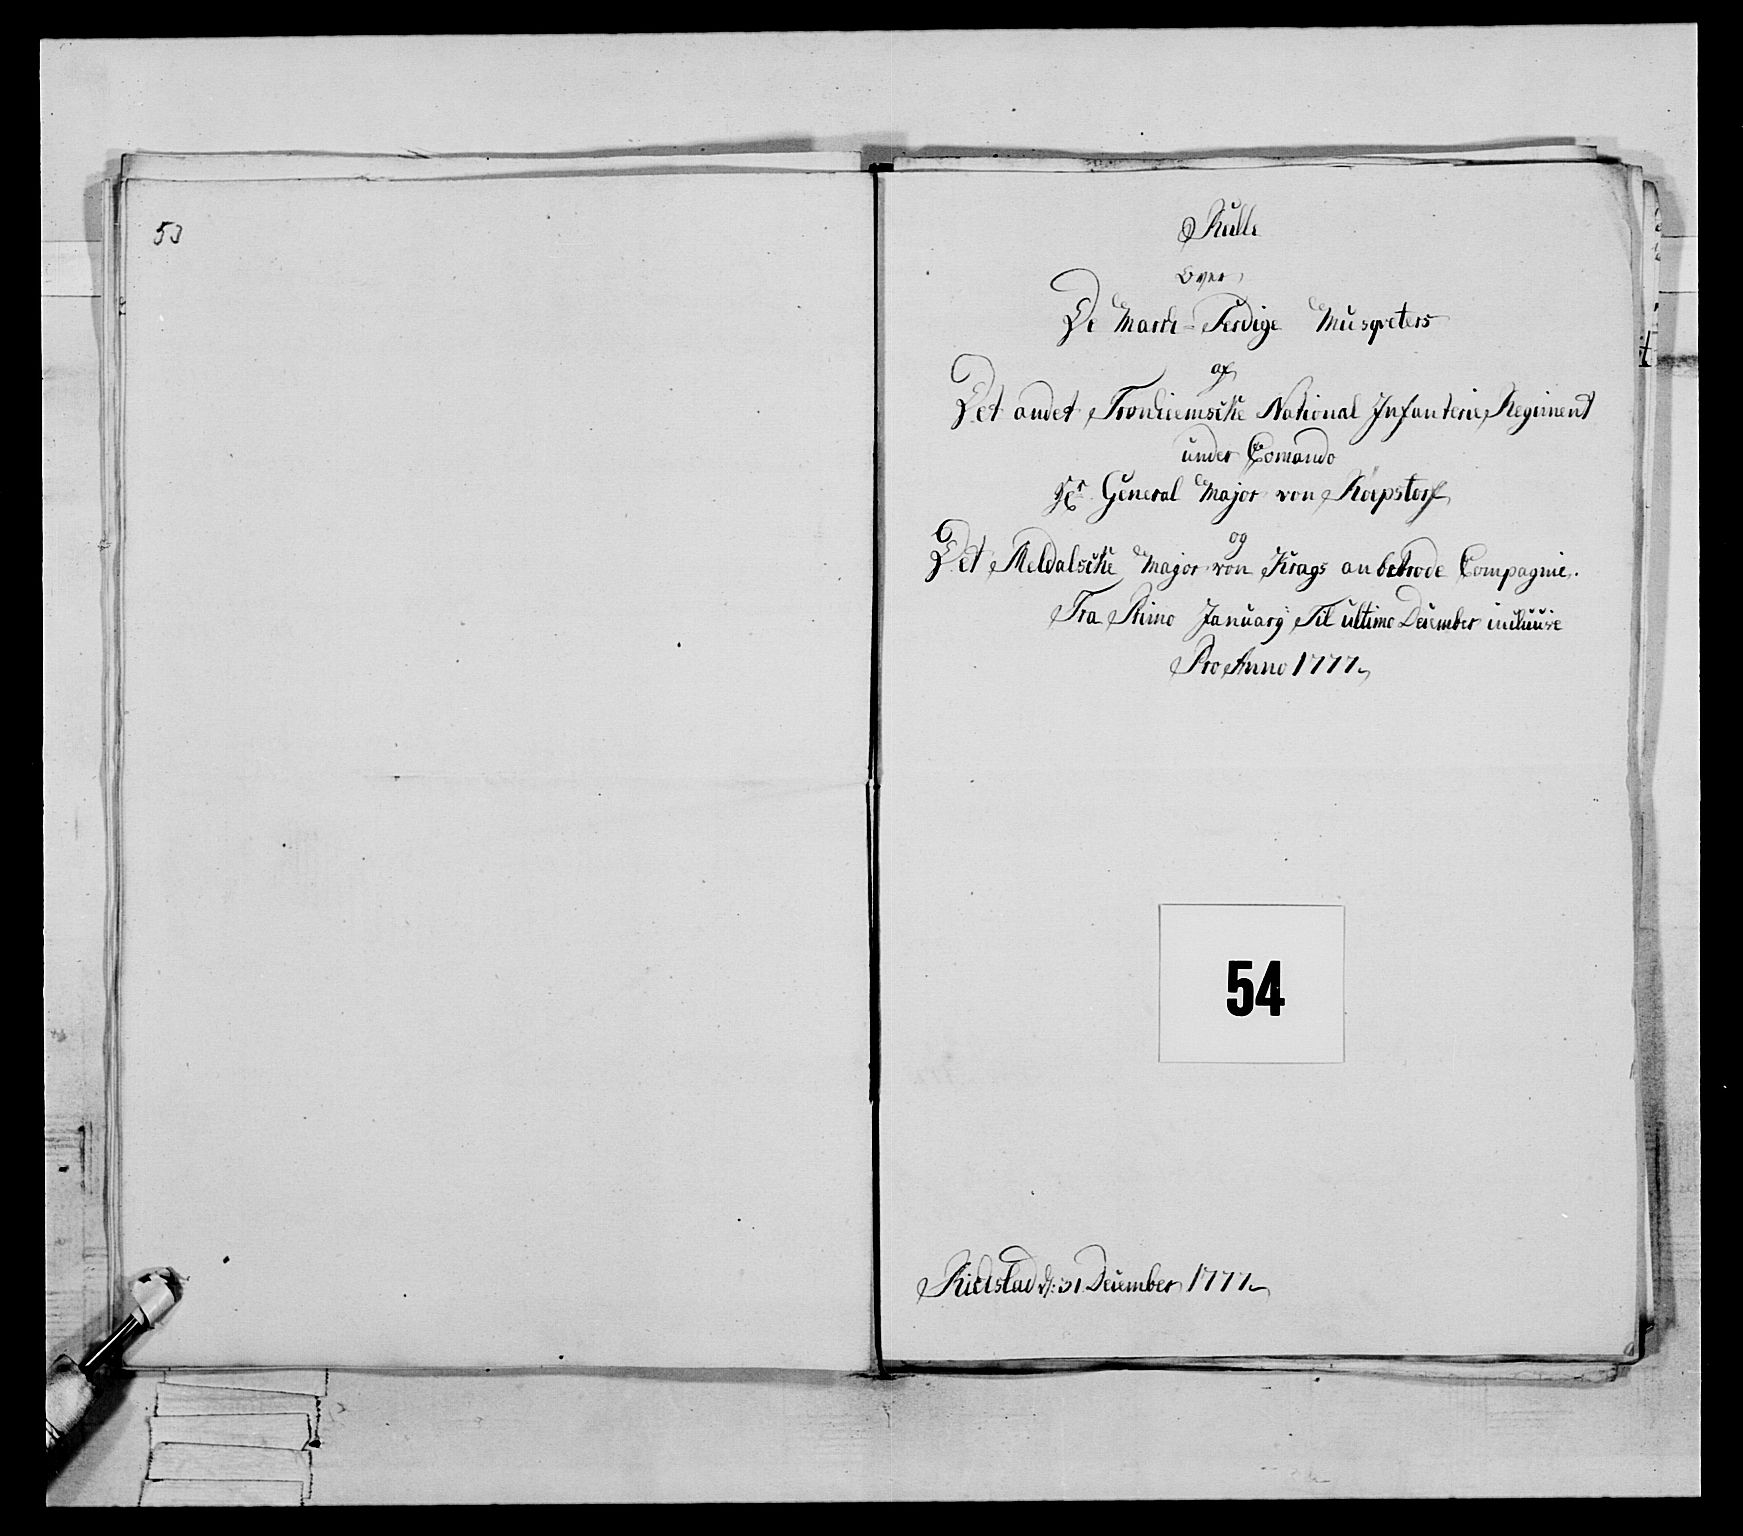 53
Rulle
Over
De March-Ferdige Musqveters
af
Det andet Tronhiemske National Infanterie Regiment
under Comando
Hr General Major von Röepstorf
og
Det Meldalske Major von Krags anbetrode Compagnie.
Fra Primo January Til ultimo December inclusive
Pro Anno 1777
54
d: 31 December 1777